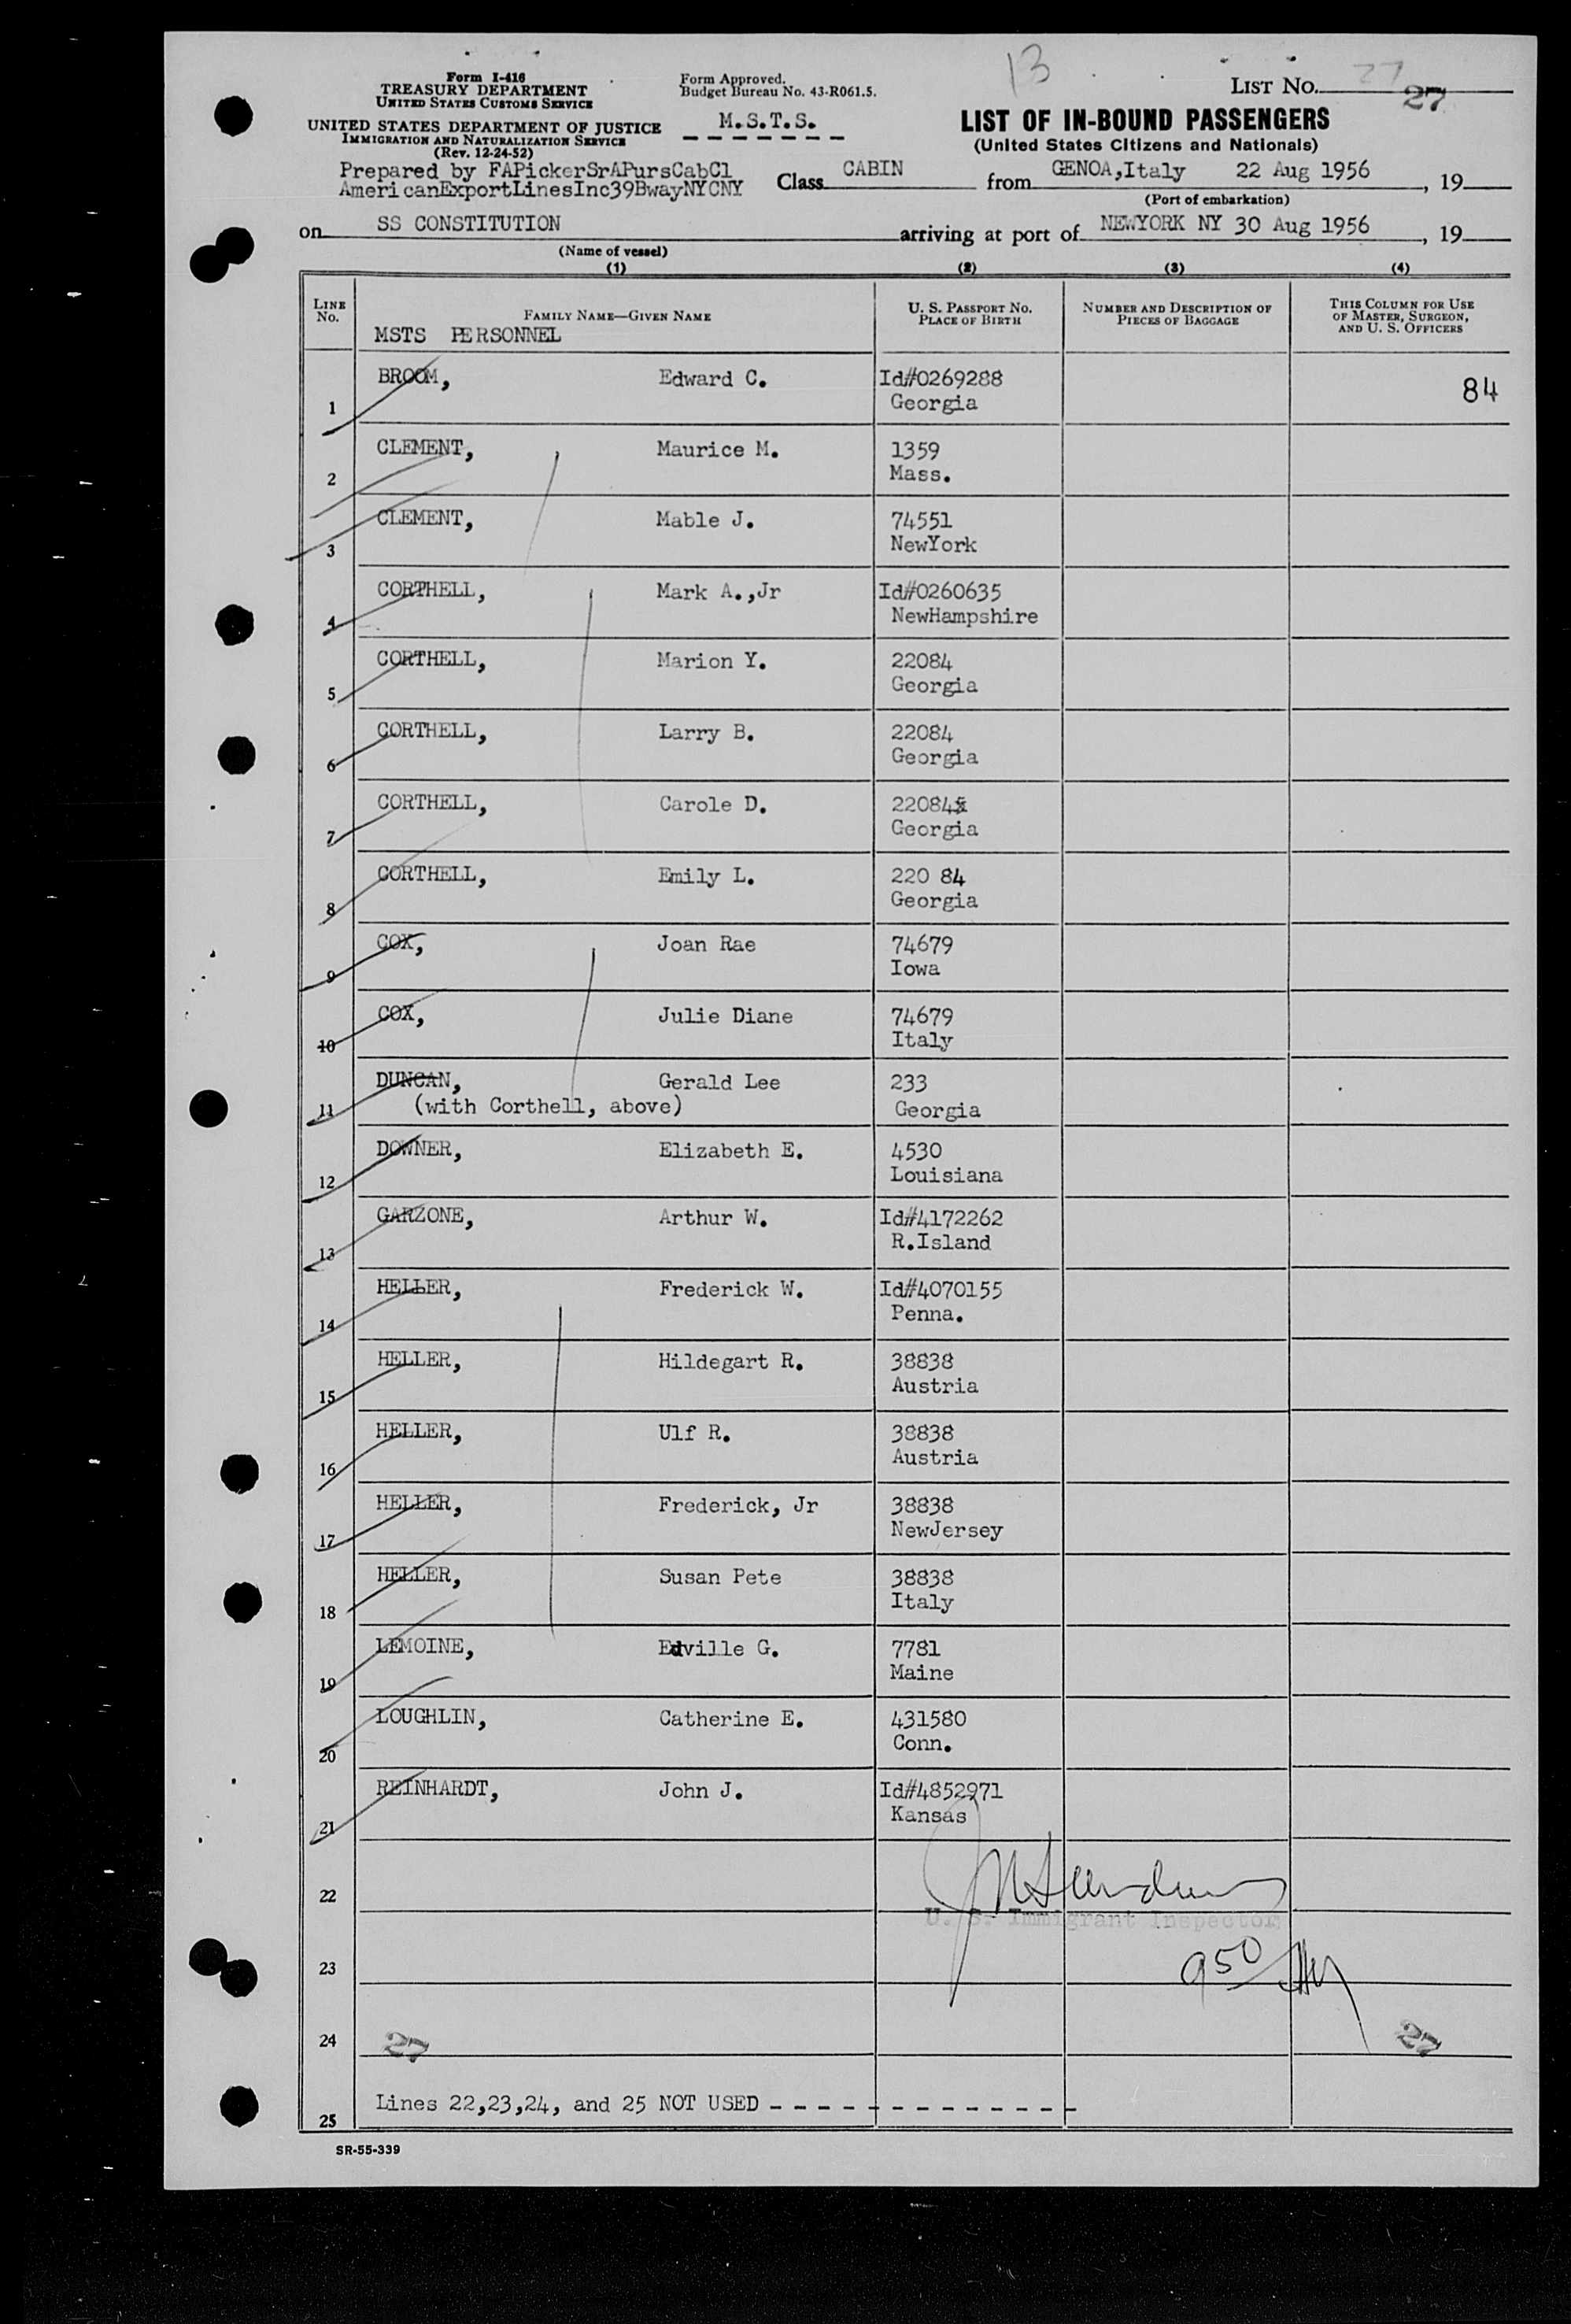 13
Form I-416
TREASURY DEPARTMENT
UNITED STATES CUSTOMS SERVICE
UNITED STATES DEPARTMENT OF JUSTICE
IMMIGRATION AND NATURALIZATION SERVICE
(Rev. 12-24-52)
Form Approved.
Budget Bureau No. 43-R061.5.
M.S.T.S.
LIST NO. 27
27
LIST OF IN-BOUND PASSENGERS
(United States Citizens and Nationals)
Prepared by FAPickerSrAPursCabCl
AmericanExportLinesInc39BwayNYCNY
Class CABIN from GENOA,Italy 22 Aug 1956, 19
(Port of embarkation)
on SS CONSTITUTION arriving at port of NEWYORK NY 30 Aug 1956, 19
(Name of vessel)
(1) (2) (3) (4)
LINE NO.
FAMILY NAME—GIVEN NAME
U. S. PASSPORT NO.
PLACE OF BIRTH
NUMBER AND DESCRIPTION OF
PIECES OF BAGGAGE
THIS COLUMN FOR USE
OF MASTER, SURGEON,
AND U. S. OFFICERS
MSTS PERSONNEL
1 BROOM, Edward C. Id#0269288 84
Georgia
2 CLEMENT, Maurice M. 1359
Mass.
3 CLEMENT, Mable J. 74551
NewYork
4 CORTHELL, Mark A.,Jr Id#0260635
NewHampshire
5 CORTHELL, Marion Y. 22084
Georgia
6 CORTHELL, Larry B. 22084
Georgia
7 CORTHELL, Carole D. 22084
Georgia
8 CORTHELL, Emily L. 220 84
Georgia
9 COX, Joan Rae 74679
Iowa
10 COX, Julie Diane 74679
Italy
11 DUNCAN, Gerald Lee 233
(with Corthell, above) Georgia
12 DOWNER, Elizabeth E. 4530
Louisiana
13 GARZONE, Arthur W. Id#4172262
R.Island
14 HELLER, Frederick W. Id#4070155
Penna.
15 HELLER, Hildegart R. 38838
Austria
16 HELLER, Ulf R. 38838
Austria
17 HELLER, Frederick, Jr 38838
NewJersey
18 HELLER, Susan Pete 38838
Italy
19 LEMOINE, Edville G. 7781
Maine
20 LOUGHLIN, Catherine E. 431580
Conn.
21 REINHARDT, John J. Id#4852971
Kansas
22
U. S. Immigrant Inspector
23 950
24 27 27
25 Lines 22,23,24, and 25 NOT USED - - - - - - - - - - - - - -
SR-55-339